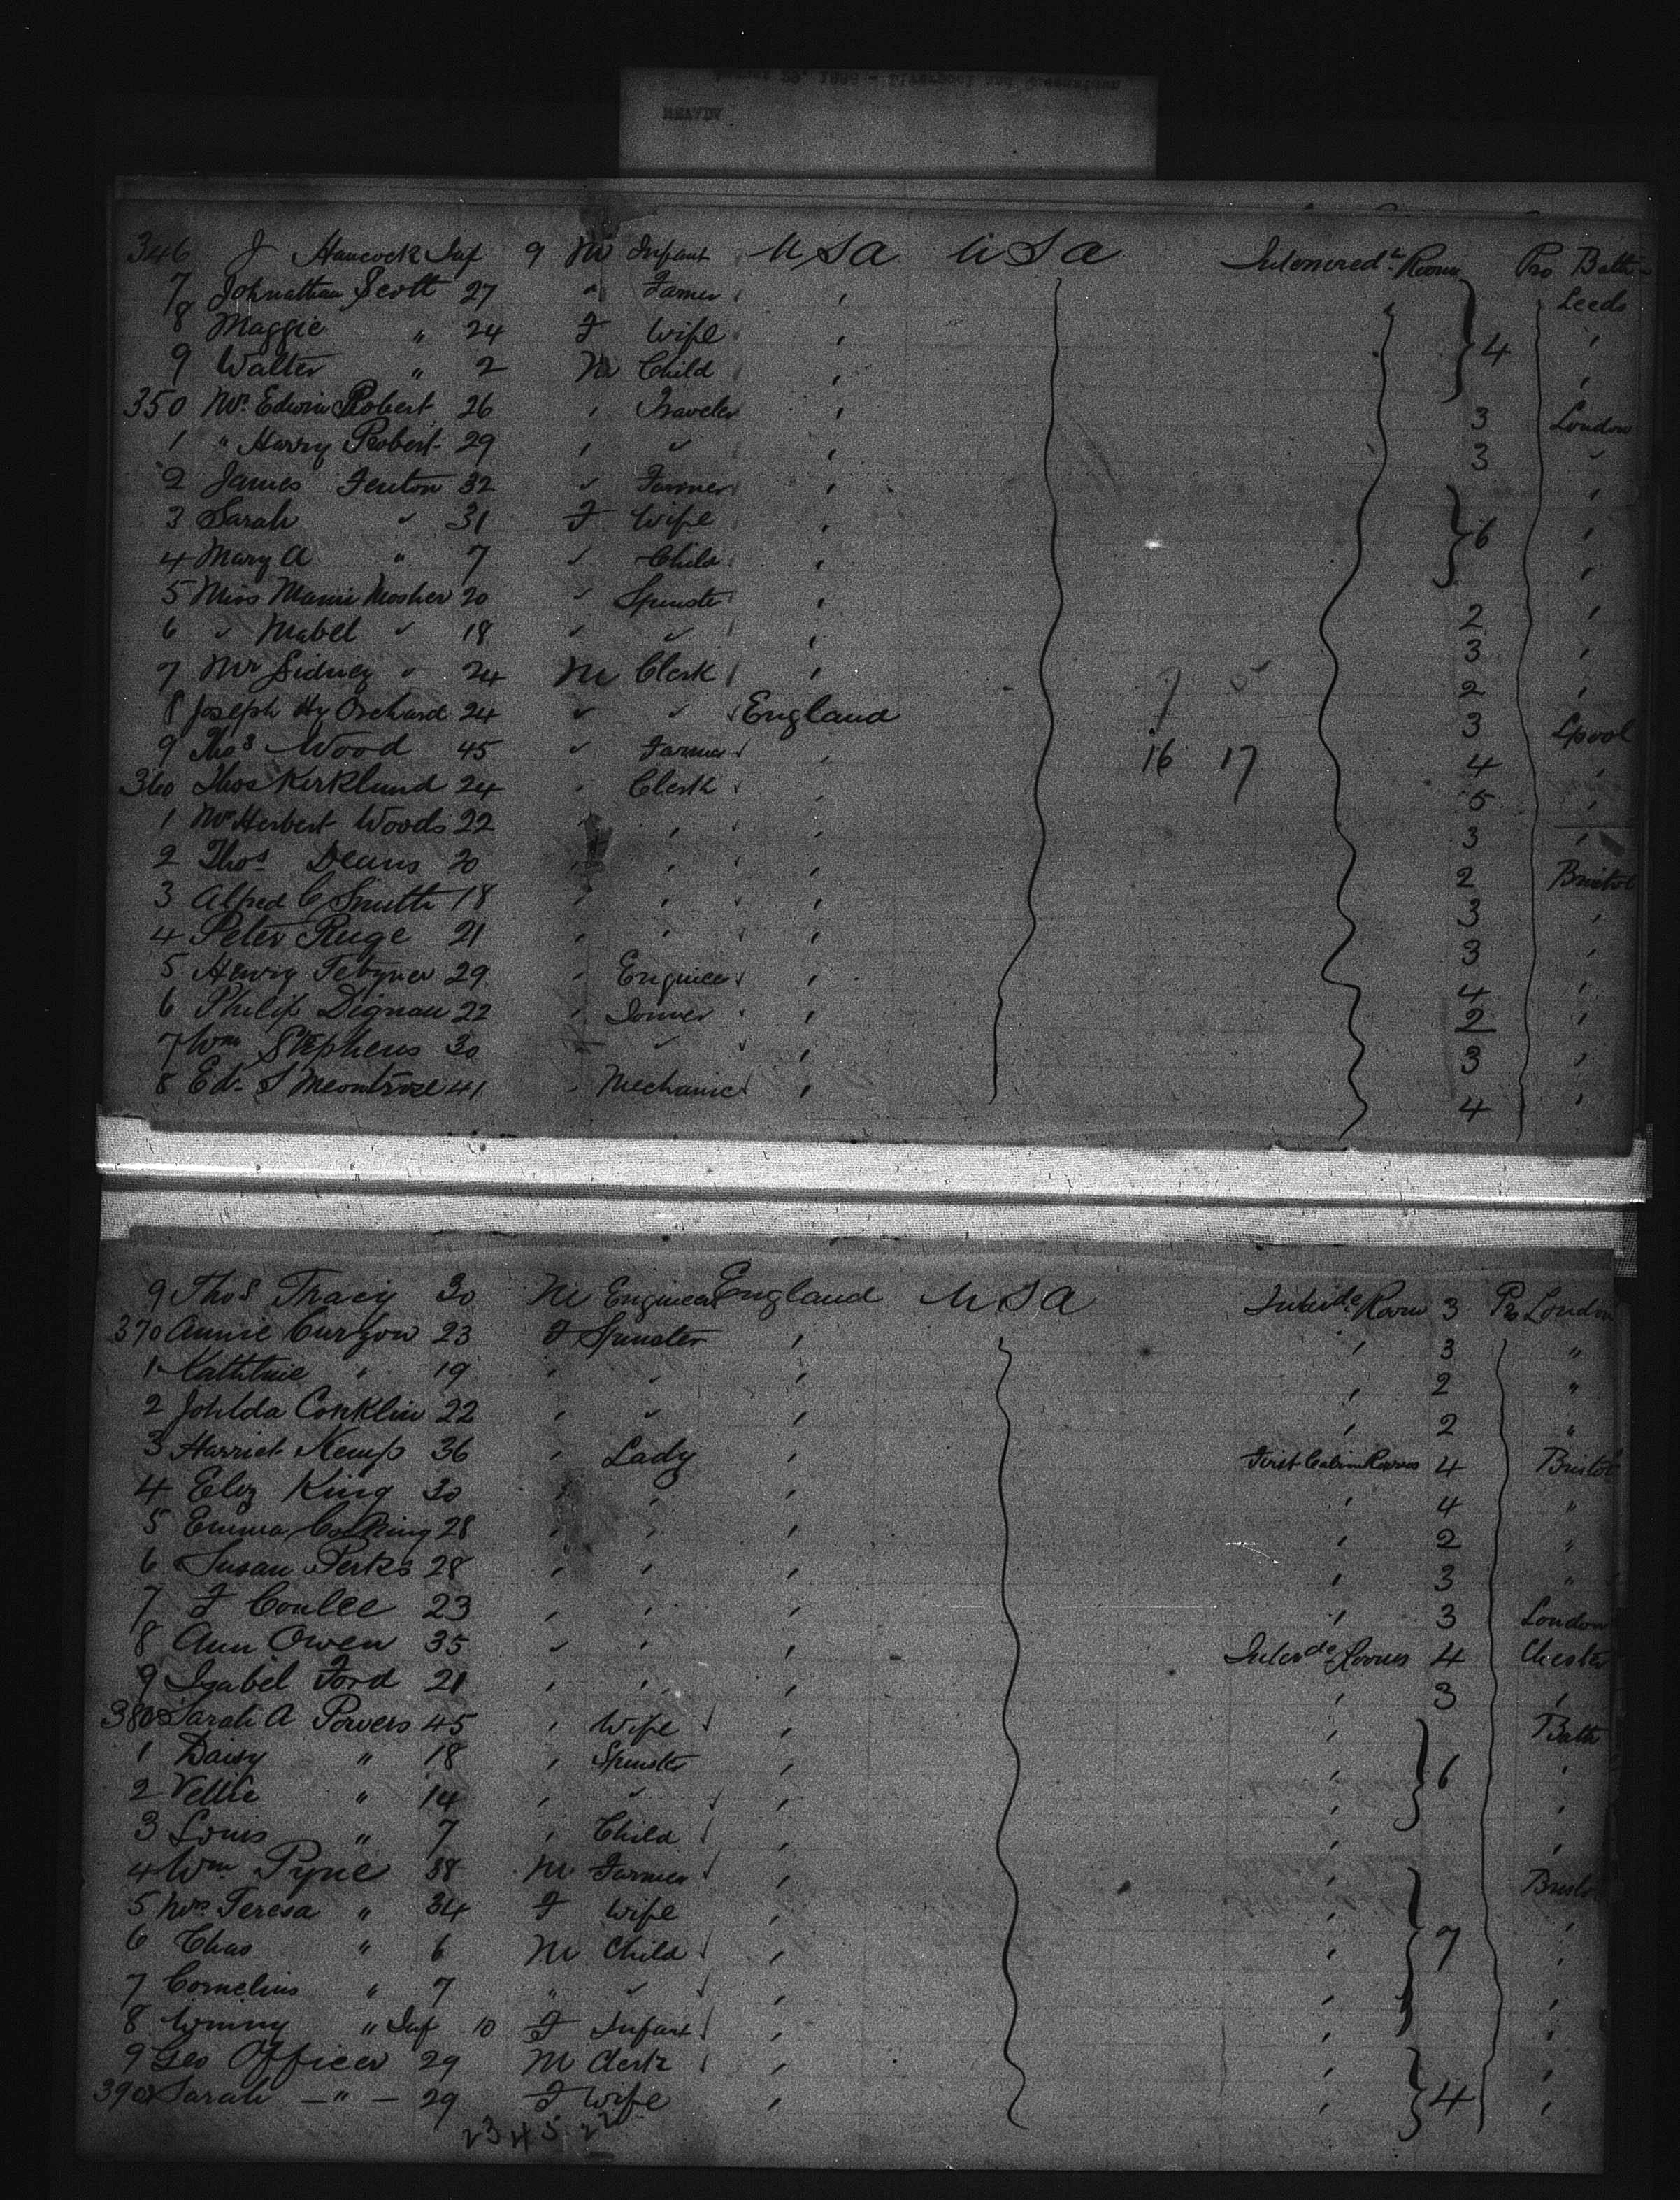 346 J Hancock Inf 9 M Infant U S A U S A Room Pro Bath
7 Johnathan Scott 27 " Farmer , Leeds
8 Maggie " 24 F Wife , 4 ,
9 Walter " 2 M Child , ,
350 Mr Edwin Robert 26 , Traveler , 3 London
1 " Harry Robert 29 , " , 3 "
2 James Fenton 32 " Farmer , ,
3 Sarah " 31 F Wife , 6 ,
4 Mary A " 7 " Child , ,
5 Miss Mosher 20 " Spinster , 2 ,
6 " Mabel " 18 " " , 3 ,
7 Mr Sidney " 24 M Clerk , 2 ,
8 Joseph Hy Orchard 24 " " England 3 Lpool
9 Thos Wood 45 " Farmer , 16 17 4 ,
360 Thos Kirklund 24 " Clerk , 5 ,
1 Mr Herbert Woods 22 , , 3 ,
2 Thos Deans 20 , , , 2 Bristol
3 Alfred C Smith 18 , , , 3 ,
4 Peter Ruge 21 , , , 3 ,
5 Henry 29 , Engineer , 4 ,
6 Philip Dignau 22 , Joiner , 2 ,
7 Wm Stephens 30 " , 3 ,
8 Ed. S 41 , Mechanic , 4 ,
9 Thos Tracy 30 M Engineer England U S A Room 3 Pro London
370 Annie Curzon 23 F Spinster , , 3 "
1 " 19 , " , , 2 "
2 Conklin 22 , " , , 2 "
3 Harriet Kemp 36 , Lady , First Cabin Rooms 4 Bristol
4 Eliz King 30 , , , , 4 "
5 Emma 28 , , , , 2 "
6 Susan Perks 28 , , , , 3 "
7 F 23 , , , , 3 London
8 Ann Owen 35 " , , Rooms 4 Chester
9 Isabel Ford 21 , , , , 3 ,
380 Sarah A Powers 45 , Wife , , Bath
1 Daisy " 18 , Spinster , , 6 ,
2 " 14 , " , , ,
3 Louis " 7 , Child , , ,
4 Wm Pyne 38 M Farmer , , Bristol
5 Mrs Teresa " 34 F Wife , , ,
6 Chas " 6 M Child , , 7 ,
7 Cornelius " 7 " " , , ,
8 Winny " Inf 10 F Infant , , ,
9 Geo Officer 29 M Clerk , , ,
390 Sarah — " — 29 F Wife , , 4 ,